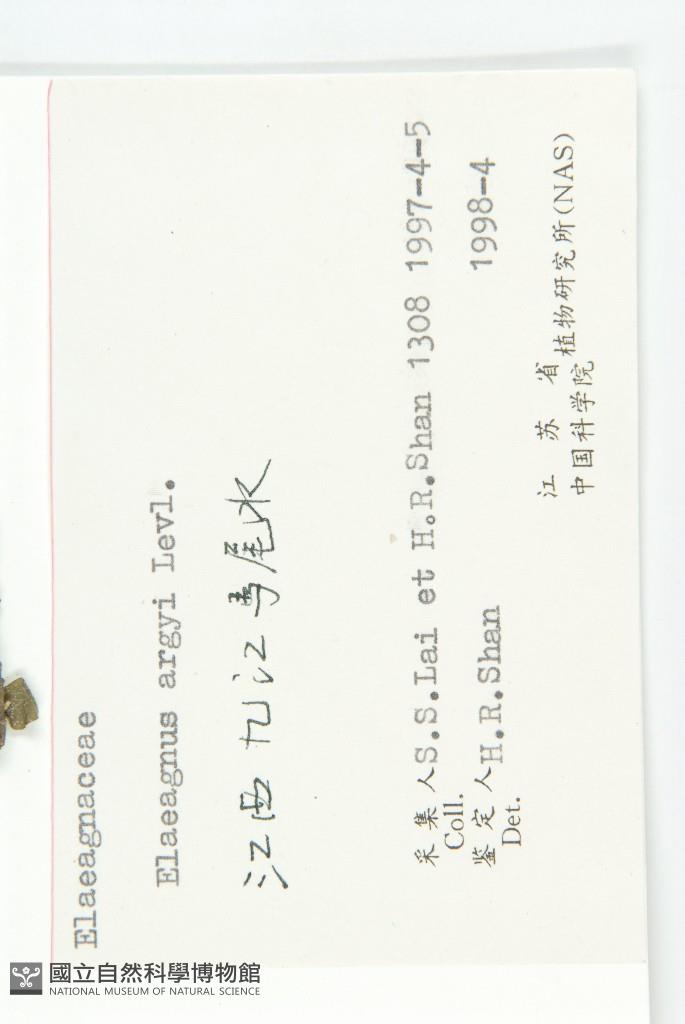 Elaeagnaceae
Elaeagnus argyi Levl.
江西九江馬尾水
采集人S.S.Lai et H.R.Shan 1308 1997-4-5
Coll.
鉴定人H.R.Shan 1998-4
Det.
江苏省
中国科学院植物研究所(NAS)
國立自然科學博物館
NATIONAL MUSEUM OF NATURAL SCIENCE